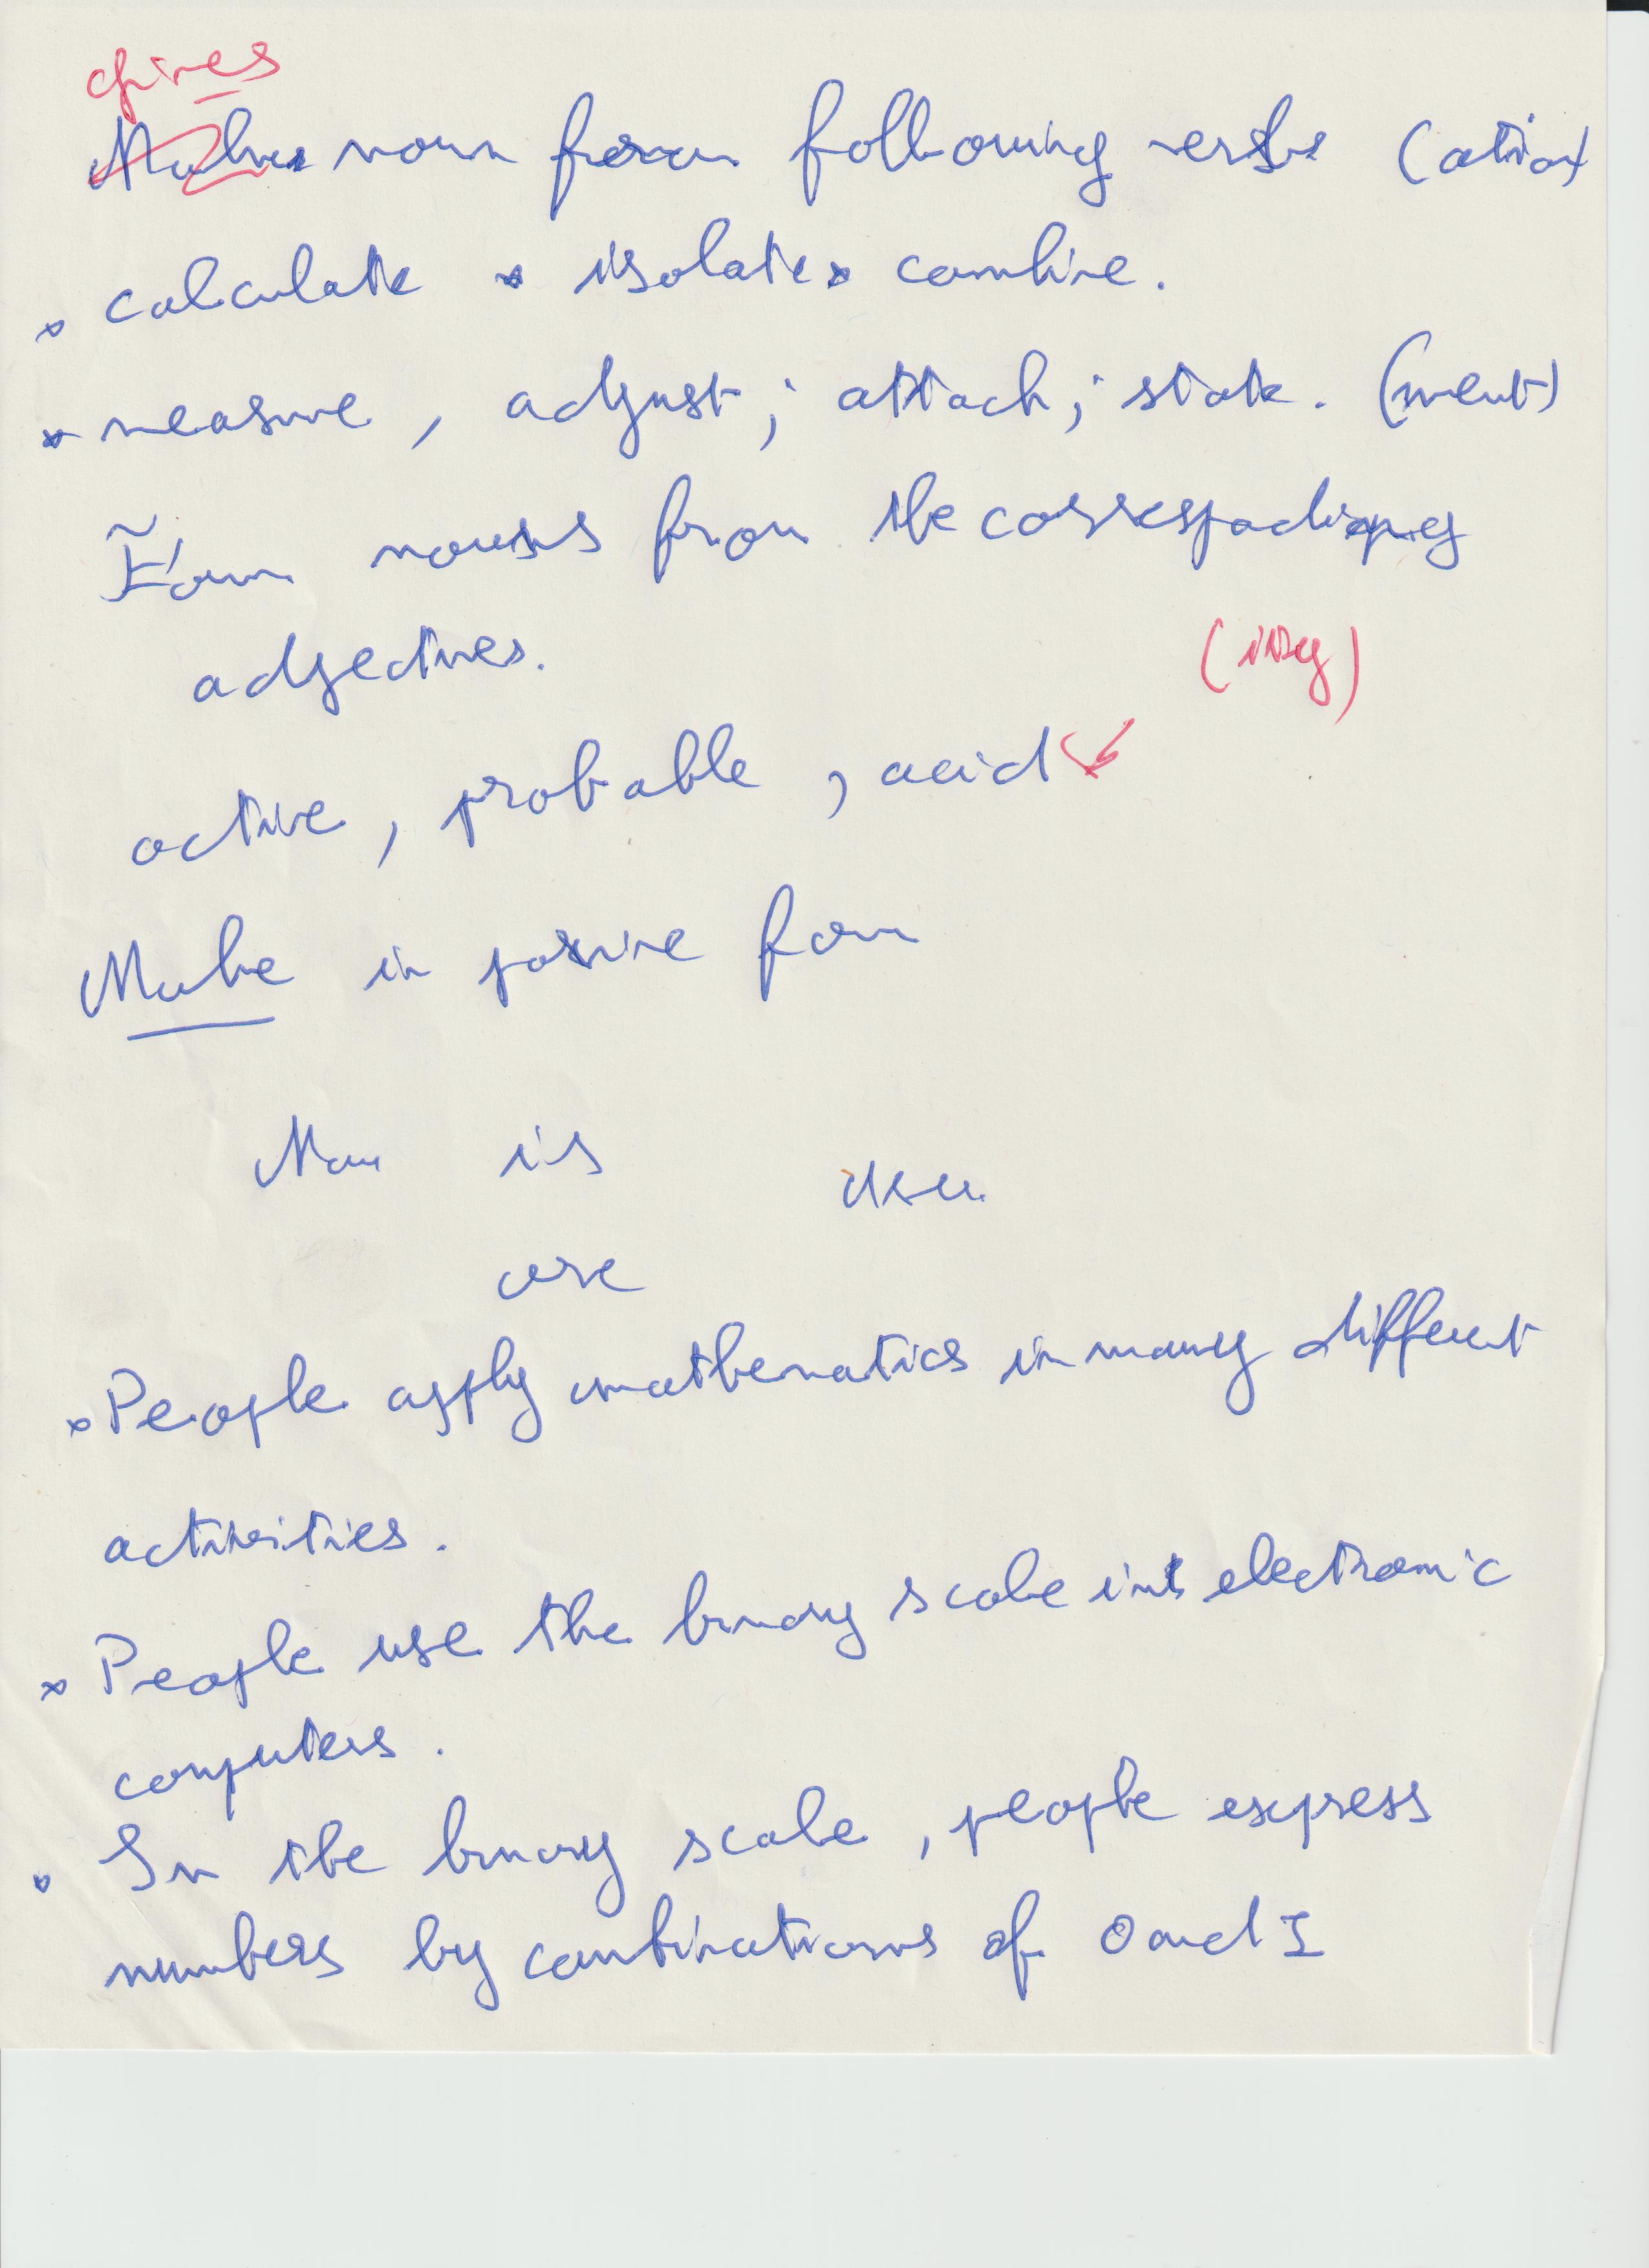 gives
Make noun from following verbs (ation)
calculate isolate combine.
measure, adjust; attach; state. (ment)
Form nouns from the corresponding
adjectives.
(ity)
active, probable, acid
Make in passive form
Man is
are
People apply mathematics in many different
activities.
People use the binary scale in electronic
computers.
In the binary scale, people express
numbers by combinations of 0 and 1